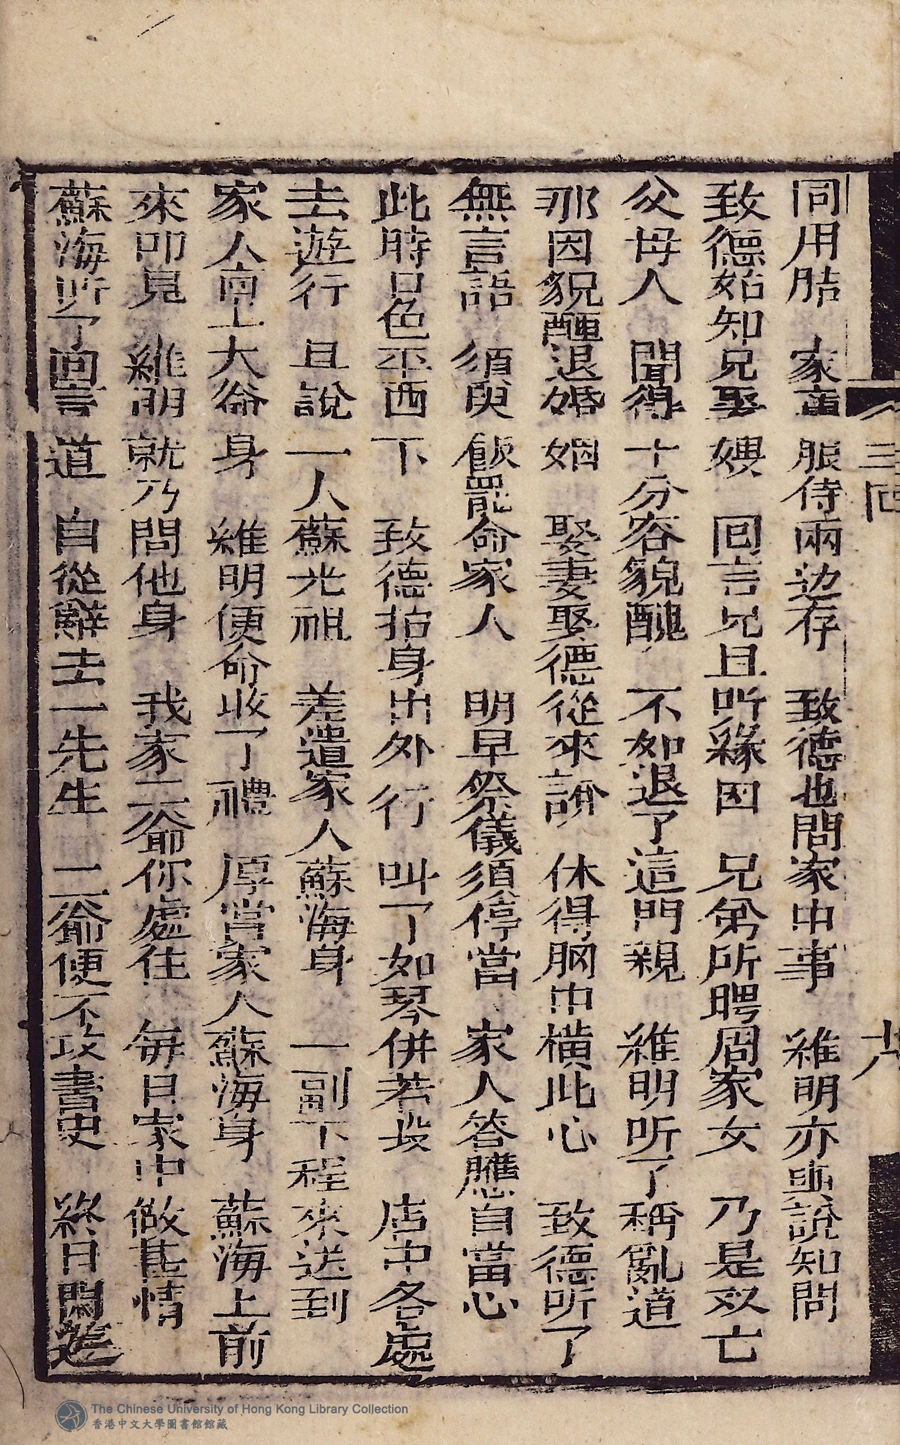 同用膳　家童服侍兩边存　致德也問家中事　維明亦與說知問
致德始知兄娶嫂　囘言兄且听緣因　兄弟所聘周家女　乃是双亡
父母人　聞得十分容貌醜　不如退了這門親　維明听了稱亂道
那因貌醜退婚姻　娶妻娶德從來說　休得胸中橫此心　致德听了
無言語　須臾飯罷命家人　明早祭儀須停當　家人答應自當心
此時日色平西下　致德抬身出外行　叫了如琴併若𭃂　店中各處
去遊行　且說一人蘇光祖　差遣家人蘇海身　一副下程來送到
家人南上大爺身　維明便命收了禮　厚賞家人蘇海身　蘇海上前
來叩見　維明就乃問他身　我家二爺你處住　每日家中做甚情
蘇海听了回言道　自從辭去一先生　二爺便不攻書史　終日閑遊
三囘
The Chinese University of Hong Kong Library Collection
香港中文大學圖書館館藏